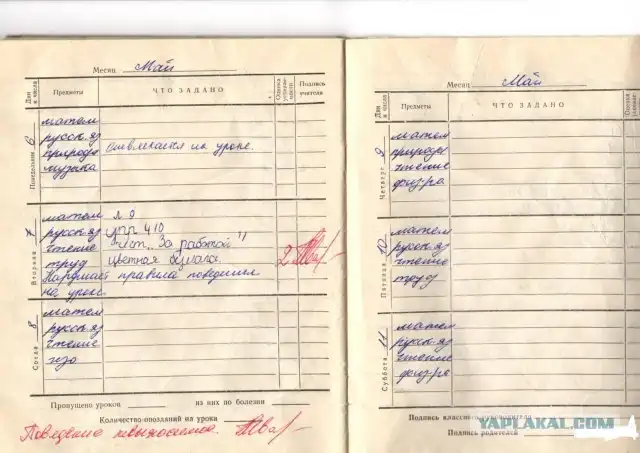 Месяц Май
Дни и числа Предметы ЧТО ЗАДАНО Оценка успеваемости Подпись учителя
Понедельник 6
матем
русск яз
природа Отвлекается на уроке.
музыка
Вторник 7
матем л 9
русск яз упр 410
чтение чит. „За работой"
труд цветная бумага. 2
Нарушает правила поведения
на уроке
Среда 8
матем
русск яз
чтение
изо
Пропущено уроков из них по болезни
Количество опозданий на уроки
Поведение невыносимое.
Месяц Май
Дни и числа Предметы ЧТО ЗАДАНО
Четверг 9
матем
природа
чтение
физ-ра
Пятница 10
матем
русск яз
чтение
труд
Суббота 11
матем
русск яз
чтение
физ-ра
Подпись классного руководителя
Подпись родителей
YAPLAKAL.COM